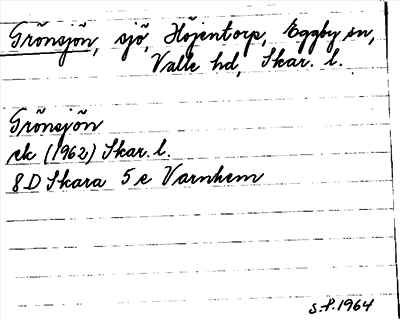 Grönsjön, sjö, Höjentorp, Eggby sn,
Valle hd, Skar. l.
Grönsjön
ek (1962) Skar. l.
8D Skara 5e Varnhem
S.P. 1964